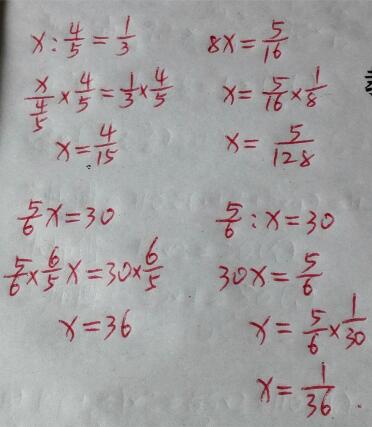 x:4/5=1/3
x/(4/5)×4/5=1/3×4/5
x=4/15
8x=5/16
x=5/16×1/8
x=5/128
5/6x=30
5/6×6/5x=30×6/5
x=36
5/6:x=30
30x=5/6
x=5/6×1/30
x=1/36